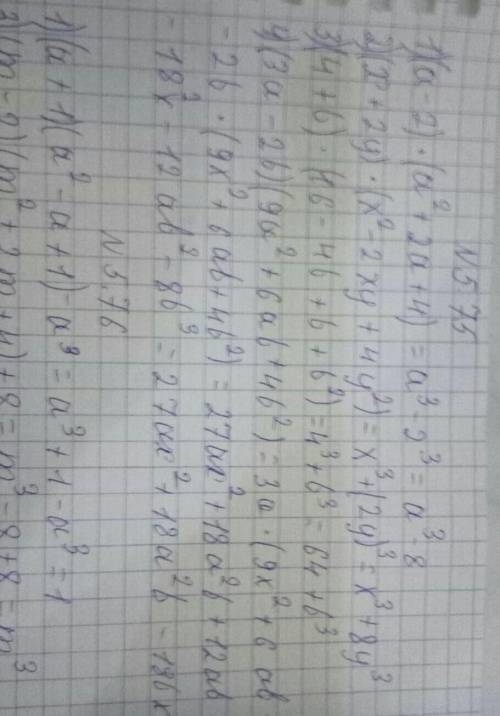 N 575
1)(a - 2) · (a² + 2a + 4) = a³ - 2³ = a³ - 8
2)(x + 2y) · (x² - 2xy + 4y²) = x³ + (2y)³ = x³ + 8y³
3)(4 + b) · (16 - 4b + b²) = 4³ + b³ = 64 + b³
4)(3a - 2b)(9a² + 6ab + 4b²) = 3a · (9x² + 6ab
- 2b · (9x² + 6ab + 4b²) = 27ax² + 18a²b + 12ab
- 18x² - 12ab² - 8b³ = 27ax² + 18a²b - 18bx
N 576
1)(a + 1)(a² - a + 1) - a³ = a³ + 1 - a³ = 1
2)(m - 2)(m² + 2m + 4) + 8 = m³ - 8 + 8 = m³